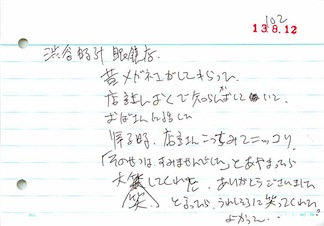 102
13.8.12
渋谷時計眼鏡店。
昔メガネユがしてもらって
店主しばらくで知らんがして いて
おばさんに話した
帰る時、店主こっちみてニッコリ
「そのせつは、すみませんでした」とあやまったら
大笑してくれた、ありがとうございました
笑、と言ったら、うれしそうに笑ってくれた。
よかった…